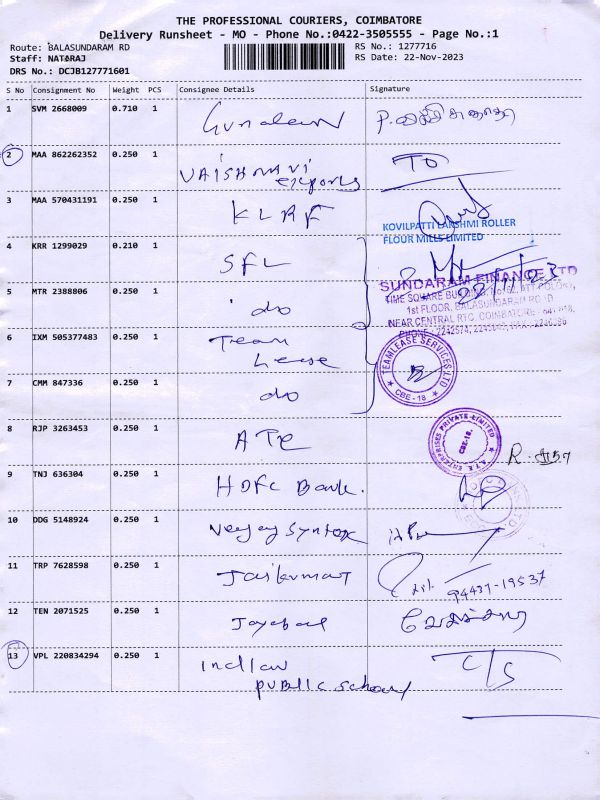 THE PROFESSIONAL COURIERS, COIMBATORE
Delivery Runsheet - MO - Phone No.:0422-3505555 - Page No.:1
Route: BALASUNDARAM RD
RS No.: 1277716
Staff: NATARAJ
RS Date: 22-Nov-2023
DRS No.: DCJB127771601
S No Consignment No Weight PCS Consignee Details Signature
1 SVM 2668009 0.710 1
2 MAA 862262352 0.250 1 VAISHNAVI TO
exports
3 MAA 570431191 0.250 1 KLRF
KOVILPATTI LAKSHMI ROLLER
FLOUR MILLS LIMITED
4 KRR 1299029 0.210 1 SFL
SUNDARAM FINANCE LTD
5 MTR 2388806 0.250 1 do
1st FLOOR, BALASUNDARAM ROAD
6 IXM 505377483 0.250 1 Team
Lease
TEAMLEASE SERVICES LTD
CBE - 18
7 CMM 847336 0.250 1 do
8 RJP 3263453 0.250 1 ATE
A.T.E. ENTERPRISES PRIVATE LIMITED
CBE-18.
9 TNJ 636304 0.250 1 HDFC Bank.
10 DDG 5148924 0.250 1 Veejay Syntex
11 TRP 7628598 0.250 1 Jaikumar 94437-19537
12 TEN 2071525 0.250 1 Jayabal
13 VPL 220834294 0.250 1 Indian C/S
public school